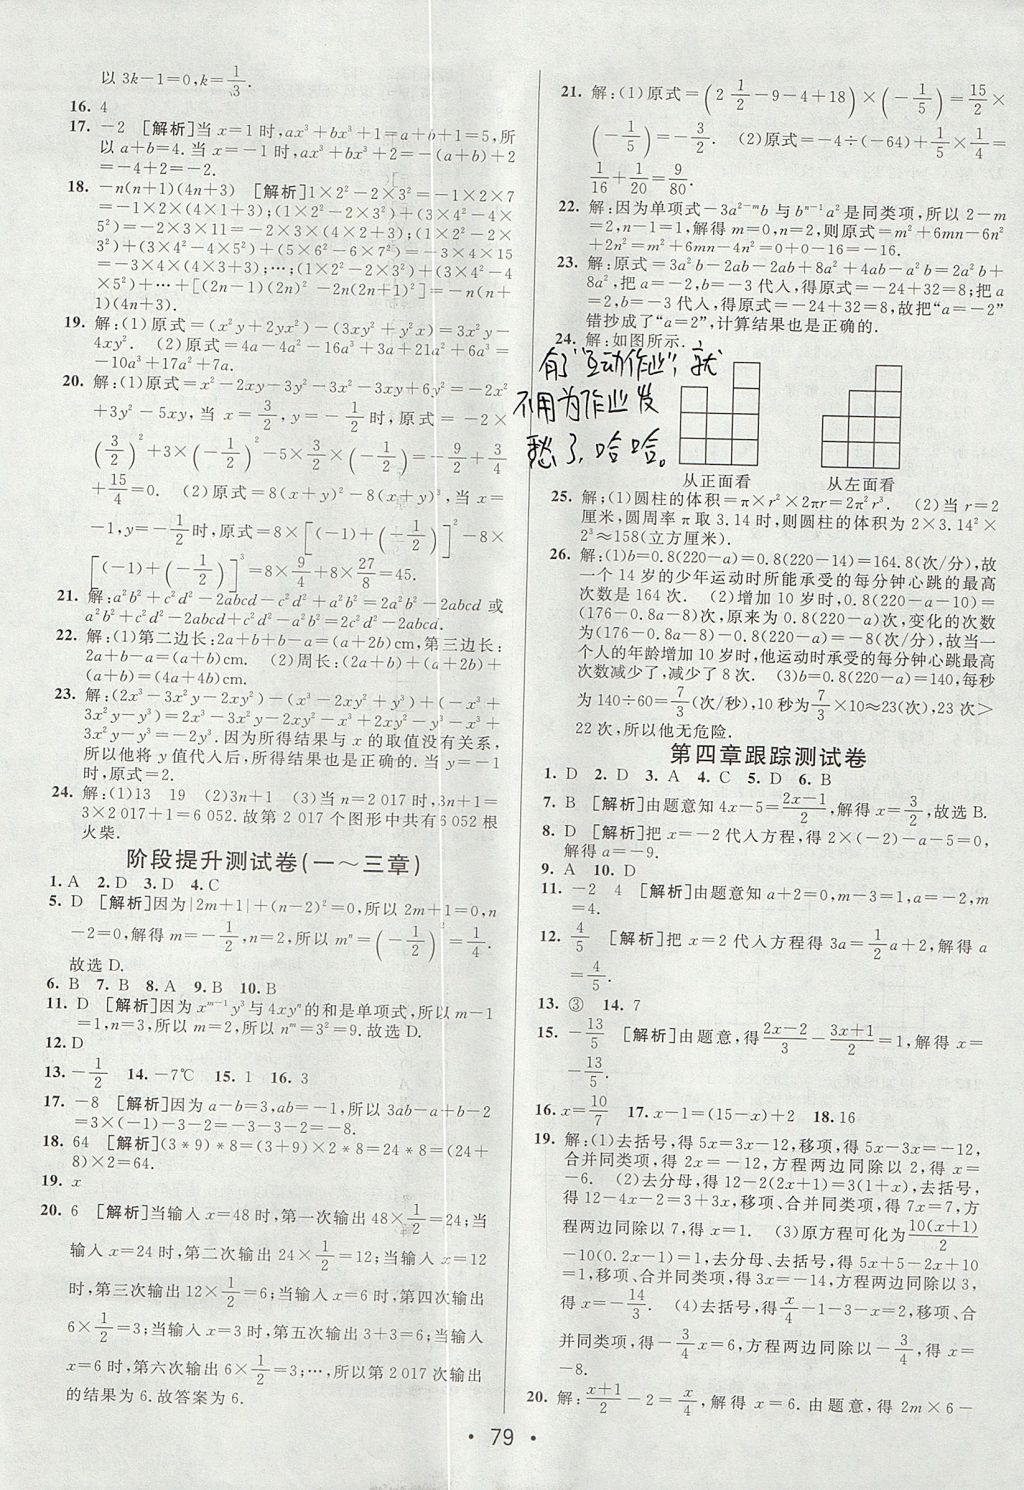 以 3k−1=0,k=1/3.
16. 4
17. −2 [解析]当 x=1 时,ax³+bx³+1=a+b+1=5,所
以 a+b=4. 当 x=−1 时,ax³+bx³+2=−(a+b)+2
=−4+2=−2.
18. −n(n+1)(4n+3) [解析]1×2²−2×3²=−1×2×7
=−1×2×(4×1+3);(1×2²−2×3²)+(3×4²−4×
5²)=−2×3×11=−2×3×(4×2+3);(1×2²−2×
3²)+(3×4²−4×5²)+(5×6²−6×7²)=−3×4×15
=−3×4×(4×3+3);…;(1×2²−2×3²)+(3×4²−
4×5²)+…+[(2n−1)(2n)²−2n(2n+1)²]=−n(n+
1)(4n+3).
19. 解:(1)原式=(x²y+2yx²)−(3xy²+y²x)=3x²y−
4xy². (2)原式=2a−4a²−16a³+3a+6a²+6a³=
−10a³+17a²+7a.
20. 解:(1)原式=x²−2xy−3y²−3x²−3xy+6y²=−2x²+
3y²−5xy, 当 x=3/2, y=−1/2 时, 原式=−2×
(3/2)²+3×(−1/2)²−5×3/2×(−1/2)=−9/2+3/4
+15/4=0. (2)原式=8(x+y)²−8(x+y)³, 当 x=
−1,y=−1/2时,原式=8×[(−1)+(−1/2)]²−8×
[(−1)+(−1/2)]³=8×9/4+8×27/8=45.
21. 解:a²b²+c²d²−2abcd−c²d²+a²b²=2a²b²−2abcd 或
a²b²+c²d²−2abcd+c²d²−a²b²=2c²d²−2abcd.
22. 解:(1)第二边长:2a+b+b−a=(a+2b)cm,第三边长:
2a+b−a=(a+b)cm. (2)周长:(2a+b)+(a+2b)+
(a+b)=(4a+4b)cm.
23. 解:(2x³−3x²y−2xy²)−(x³−2xy²+y³)+(−x³+
3x²y−y³)=2x³−3x²y−2xy²−x³+2xy²−y³−x³+
3x²y−y³=−2y³. 因为所得结果与 x 的取值没有关系,
所以他将 y 值代入后,所得结果也是正确的. 当 y=−1
时,原式=2.
24. 解:(1)13 19 (2)3n+1 (3)当 n=2 017 时,3n+1=
3×2 017+1=6 052. 故第 2 017 个图形中共有 6 052 根
火柴.
阶段提升测试卷(一～三章)
1. A 2. D 3. D 4. C
5. D [解析]因为|2m+1|+(n−2)²=0,所以 2m+1=0,n
−2=0,解得 m=−1/2,n=2,所以 mⁿ=(−1/2)²=1/4.
故选 D.
6. B 7. B 8. A 9. A 10. B
11. D [解析]因为 xᵐ⁻¹y³与 4xyⁿ的和是单项式,所以 m−1
=1,n=3,所以 m=2,所以 nᵐ=3²=9.故选 D.
12. D
13. −1/2 14. −7℃ 15. 1 16. 3
17. −8 [解析]因为 a−b=3,ab=−1,所以 3ab−a+b−2
=3×(−1)−3−2=−3−3−2=−8.
18. 64 [解析](3*9)*8=(3×9−3)*8=24*8=(24+
8)×2=64.
19. x
20. 6 [解析]当输入 x=48 时,第一次输出 48×1/2=24;当
输入 x=24 时,第二次输出 24×1/2=12;当输入 x=12
时,第三次输出 12×1/2=6;当输入 x=6 时,第四次输出
6×1/2=3;当输入 x=3 时,第五次输出 3+3=6;当输入
x=6 时,第六次输出 6×1/2=3;…,所以第 2 017 次输出
的结果为 6.故答案为 6.
21. 解:(1)原式=(2 1/2−9−4+18)×(−1/5)=15/2
×(−1/5)=−3/2. (2)原式=−4÷(−64)+1/5×1/4=
1/16+1/20=9/80.
22. 解:因为单项式−3a²⁻ᵐb 与 bⁿ⁻¹a²是同类项,所以 2−m
=2,n−1=1,解得 m=0,n=2,则原式=m²+6mn−6n²
+2n²=m²+6mn−4n²=0+0−16=−16.
23. 解:原式=3a²b−2ab−2ab+8a²+4ab−a²b=2a²b+
8a²,把 a=−2,b=−3 代入,得原式=−24+32=8;把 a
=2,b=−3 代入,得原式=−24+32=8,故把“a=−2”
错抄成了“a=2”,计算结果也是正确的.
24. 解:如图所示.
有了“互动作业”,就
不用为作业发
愁了,哈哈。
从正面看 从左面看
25. 解:(1)圆柱的体积=π×r²×2πr=2π²r³. (2)当 r=2
厘米,圆周率 π 取 3.14 时,则圆柱的体积为 2×3.14²×
2³≈158(立方厘米).
26. 解:(1)b=0.8(220−a)=0.8(220−14)=164.8(次/分),故
一个 14 岁的少年运动时所能承受的每分钟心跳的最高
次数是 164 次. (2)增加 10 岁时,0.8(220−a−10)=
(176−0.8a−8)次,原来为 0.8(220−a)次,变化的次数
为(176−0.8a−8)−0.8(220−a)=−8(次/分),故当一
个人的年龄增加 10 岁时,他运动时承受的每分钟心跳最高
次数减少了,减少了 8 次. (3)b=0.8(220−a)=140,每秒
为 140÷60=7/3(次/秒),10 秒为7/3×10≈23(次),23 次>
22 次,所以他无危险.
第四章跟踪测试卷
1. D 2. D 3. A 4. C 5. D 6. B
7. B [解析]由题意知 4x−5=(2x−1)/2,解得 x=3/2,故选 B.
8. D [解析]把 x=−2 代入方程,得 2×(−2)−a−5=0,
解得 a=−9.
9. A 10. D
11. −2 4 [解析]由题意知 a+2=0,m−3=1,所以 a=−2,m
=4.
12. 4/5 [解析]把 x=2 代入方程得 3a=1/2a+2,解得 a=
4/5.
13. ③ 14. 7
15. −13/5 [解析]由题意,得(2x−2)/3−(3x+1)/2=1,解得 x=
−13/5.
16. x=10/7 17. x−1=(15−x)+2 18. 16
19. 解:(1)去括号,得 5x=3x−12,移项,得 5x−3x=−12,
合并同类项,得 2x=−12,方程两边同除以 2,得 x=
−6. (2)去分母,得 12−2(2x+1)=3(1+x),去括号,
得 12−4x−2=3+3x,移项、合并同类项,得 7x=7,方
程两边同除以 7,得 x=1. (3)原方程可化为10(x+1)/2
−10(0.2x−1)=1,去分母、去括号,得 5x+5−2x+10
=1,移项、合并同类项,得 3x=−14,方程两边同除以 3,
得 x=−14/3. (4)去括号,得 x/4−1−3−x=2,移项、合
并同类项,得−3/4x=6,方程两边同除以−3/4,得 x=
−8.
20. 解:(x+1)/2−2=x/4,解得 x=6. 由题意,得 2m×6−
• 79 •